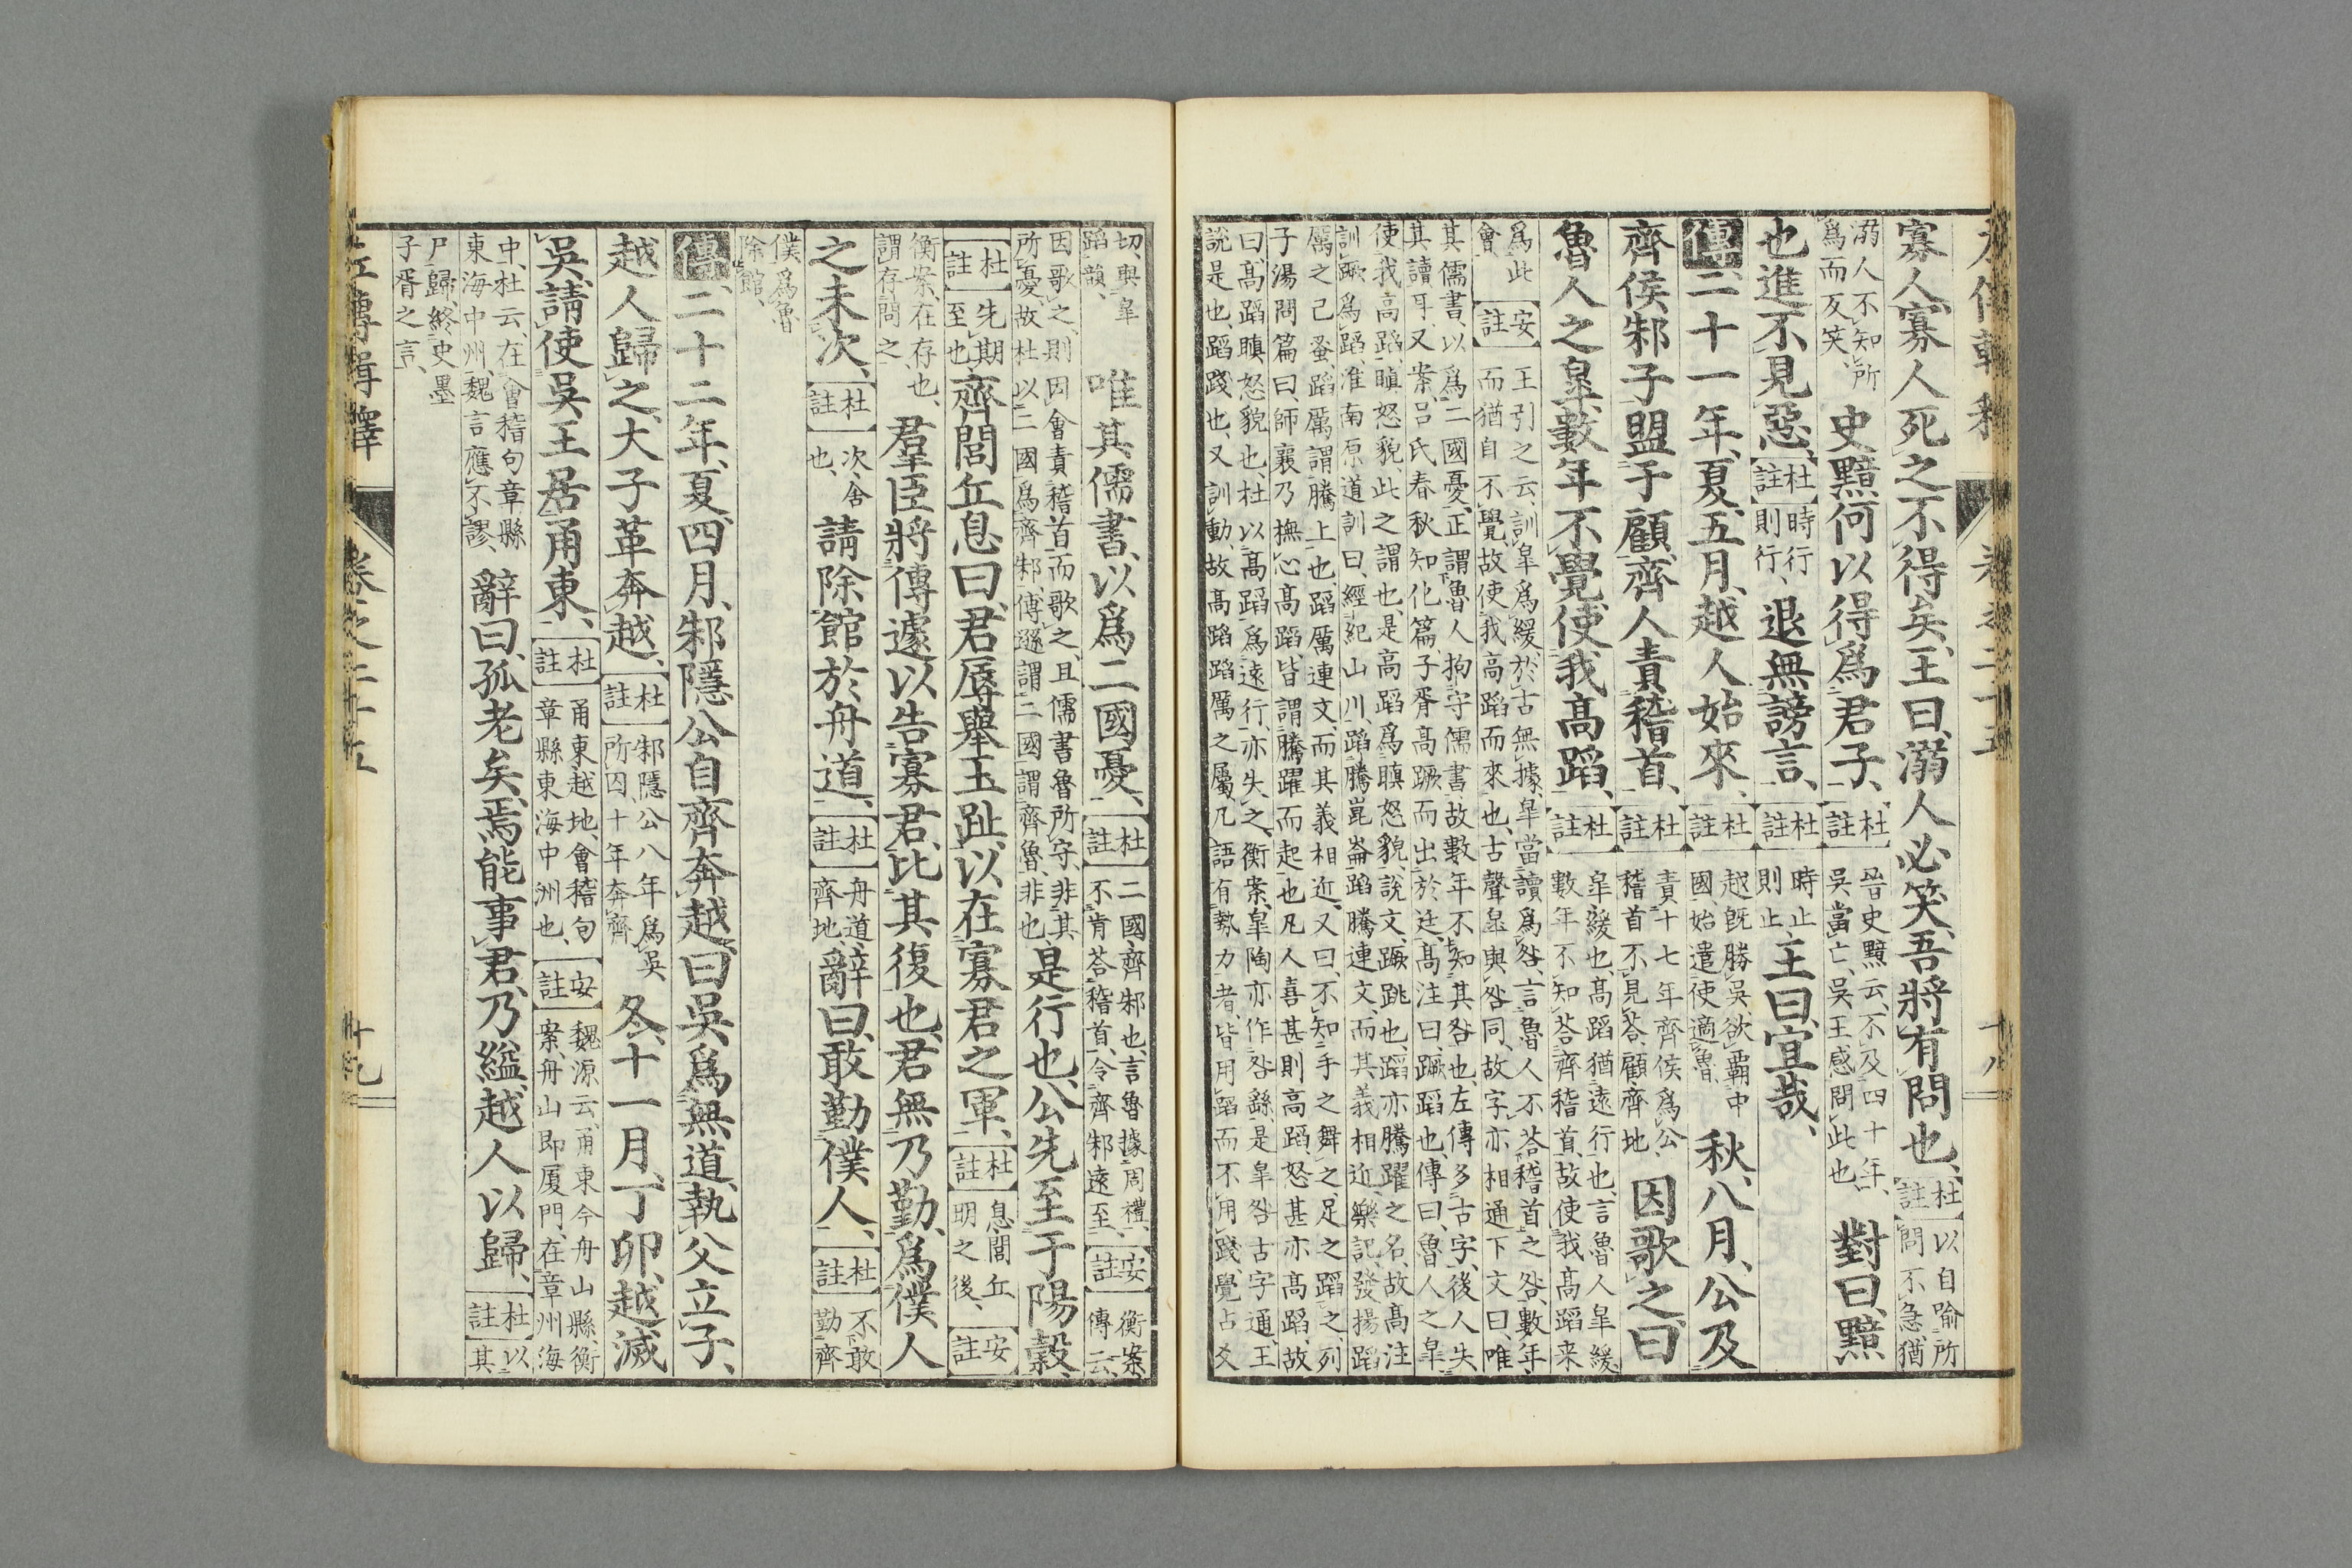 左傳輯釋 卷之二十五 十八
寡人寡人死之不得矣王曰溺人必笑吾將有問也、杜註以自喻所問不急猶
溺人不知所爲而反笑、史黯何以得爲君子、杜註晉史黯云、不及四十年、吳當亡、吳王感問此也、對曰、黯
也進不見惡、杜註時行則行、退無謗言、杜註時止則止、王曰、宜哉、
傳二十一年、夏、五月、越人始來、杜註越旣勝吳、欲霸中國、始遣使適魯、秋、八月、公及
齊侯邾子盟于顧、齊人責稽首、杜註責十七年齊侯爲公稽首不見荅、顧齊地、因歌之曰
魯人之皐、數年不覺、使我高蹈、杜註皐緩也、高蹈猶遠行也、言魯人皐緩、數年不知荅齊稽首、故使我高蹈來
爲此會、安註王引之云、訓皐爲緩、於古無據、皐當讀爲咎、言魯人不荅稽首之咎、數年而猶自不覺、故使我高蹈而來也、古聲皐與咎同、故字亦相通、下文曰、唯
其儒書、以爲二國憂、正謂魯人拘守儒書、故數年不知其咎也、左傳多古字、後人失其讀耳、又案、呂氏春秋知化篇、子胥高蹶而出於廷、高注曰、蹶蹈也、傳曰、魯人之皐、
使我高蹈、瞋怒貌、此之謂也、是高蹈爲瞋怒貌、說文、蹶跳也、蹈亦騰躍之名、故高注訓蹶爲蹈、淮南原道訓曰、經紀山川、蹈騰崑崙、蹈騰連文、而其義相近、樂記、發揚蹈
厲之已蚤、蹈厲謂騰上也、蹈厲連文、而其義相近、又曰、不知手之舞之、足之蹈之、列子湯問篇曰、師襄乃撫心高蹈、皆謂騰躍而起也、凡人喜甚則高蹈、怒甚亦高蹈、故
曰、高蹈瞋怒貌也、杜以高蹈爲遠行、亦失之、衡案、皐陶亦作咎繇、是皐咎古字通、王說是也、蹈踐也、又訓動、故高蹈蹈厲之屬、凡語有勢力者、皆用蹈而不用踐、覺占爻
切、與皐蹈韻、唯其儒書、以爲二國憂、杜註二國齊邾也、言魯據周禮、不肯荅稽首、令齊邾遠至、安註衡案、傳云、
因歌之、則因會責稽首而歌之、且儒書魯所守、非其所憂、故杜以二國爲齊邾、傅遜謂二國謂齊魯、非也、是行也、公先至于陽穀、
杜註先期至也、齊閭丘息曰、君辱舉玉趾、以在寡君之軍、杜註息閭丘明之後、安註
衡案、在存也、謂存問之、羣臣將傳遽以告寡君、比其復也、君無乃勤、爲僕人
之未次、杜註次、舍也、請除館於舟道、杜註舟道、齊地、辭曰、敢勤僕人、杜註不敢勤齊
僕爲魯除館、
傳二十二年、夏、四月、邾隱公自齊奔越、曰吳爲無道、執父立子、
越人歸之、大子革奔越、杜註邾隱公八年爲吳所囚、十年奔齊、冬、十一月、丁卯、越滅
吳、請使吳王居甬東、杜註甬東越地、會稽句章縣東海中洲也、安註魏源云、甬東今舟山縣、衡案、舟山即厦門、在章州海
中、杜云、在會稽句章縣東海中州、魏言應不謬、辭曰、孤老矣、焉能事君、乃縊、越人以歸、杜註以其
尸歸、終史墨子胥之言、
左傳輯釋 卷之二十五 十九